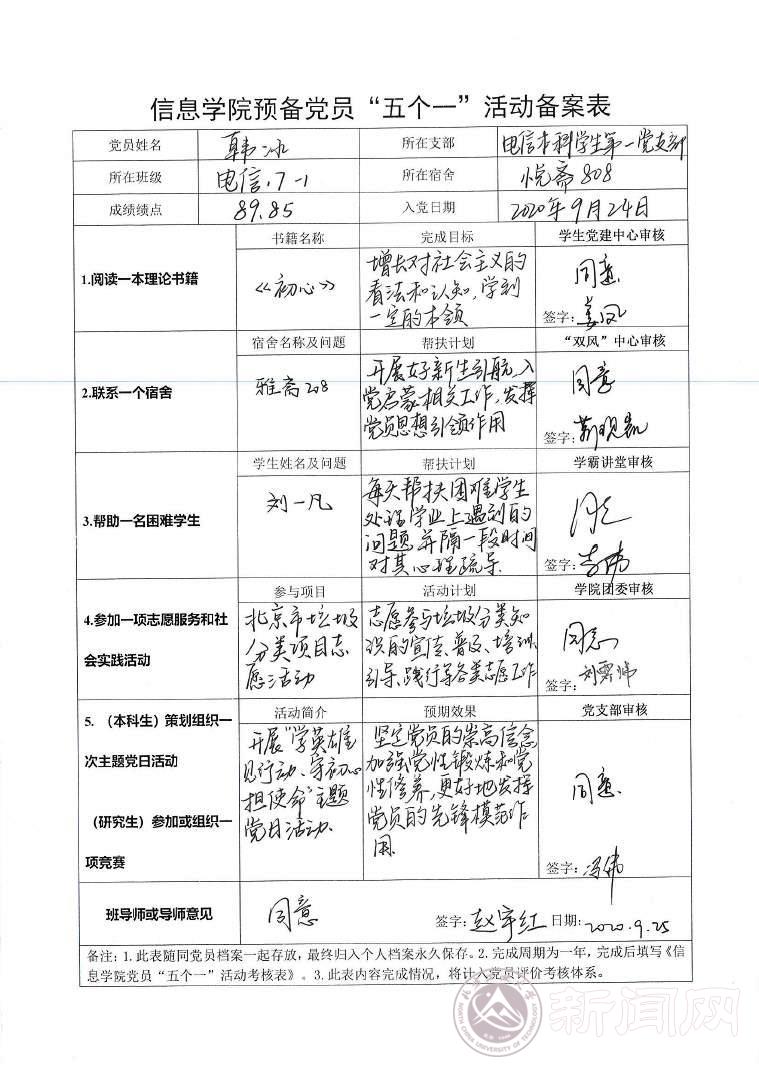 信息学院预备党员“五个一”活动备案表
党员姓名 韩冰 所在支部 电信本科学生第一党支部
所在班级 电信17-1 所在宿舍 悦斋808
成绩绩点 89.85 入党日期 2020年9月24日
1.阅读一本理论书籍
书籍名称 完成目标 学生党建中心审核
《初心》
增长对社会主义的
看法和认知,学到
一定的本领
同意
签字:
2.联系一个宿舍
宿舍名称及问题 帮扶计划 “双风”中心审核
雅斋208
开展好新生引航,入
党启蒙相关工作,发挥
党员思想引领作用
同意
签字:
3.帮助一名困难学生
学生姓名及问题 帮扶计划 学霸讲堂审核
刘一凡
每天帮扶困难学生
处理学业上遇到的
问题,并隔一段时间
对其心理疏导.
同意
签字:
4.参加一项志愿服务和社
会实践活动
参与项目 活动计划 学院团委审核
北京市垃圾
分类项目志
愿活动
志愿参与垃圾分类知
识的宣传、普及、培训、
引导、践行等各类志愿工作
同意
签字:
5.（本科生）策划组织一
次主题党日活动
（研究生）参加或组织一
项竞赛
活动简介 预期效果 党支部审核
开展“学英雄
见行动、守初心
担使命”主题
党日活动.
坚定党员的崇高信念
加强党性锻炼和党
性修养,更好地发挥
党员的先锋模范作
用.
同意
签字:冯伟
班导师或导师意见 同意 签字:赵宇红 日期:2020.9.25
备注: 1. 此表随同党员档案一起存放，最终归入个人档案永久保存。2. 完成周期为一年，完成后填写《信
息学院党员“五个一”活动考核表》。3. 此表内容完成情况，将计入党员评价考核体系。
NORTH CHINA UNIVERSITY OF TECHNOLOGY
新闻网